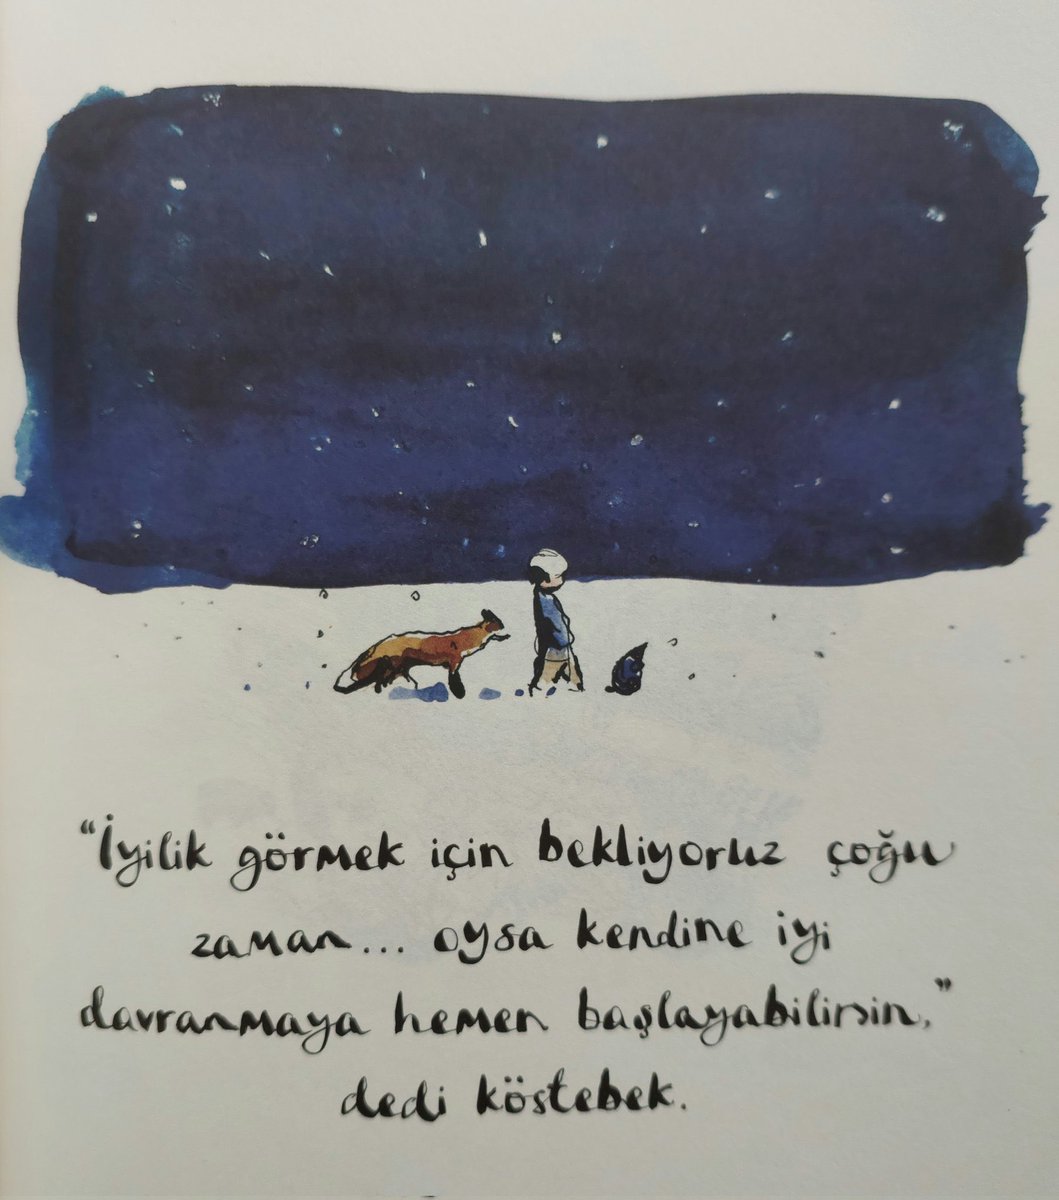 "İyilik görmek için bekliyoruz çoğu
zaman... oysa kendine iyi
davranmaya hemen başlayabilirsin,"
dedi köstebek.